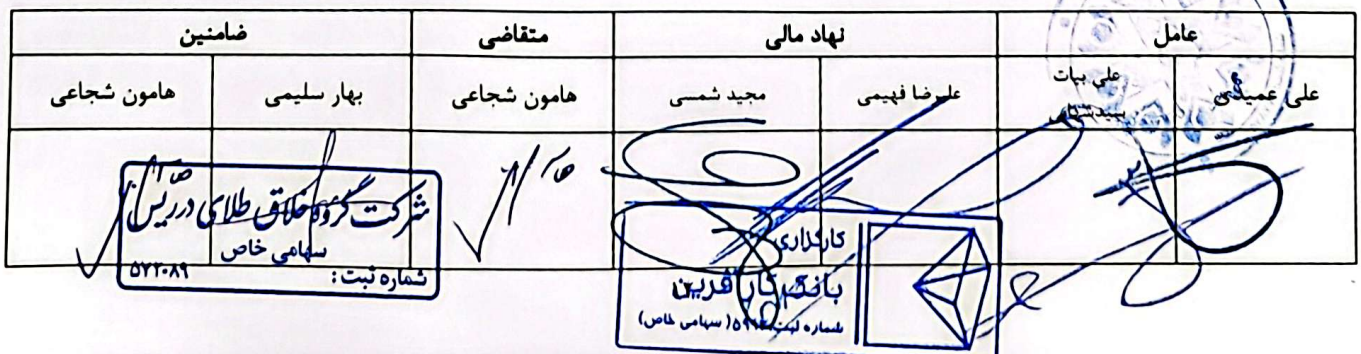 عامل
نهاد مالی
متقاضی
ضامنین
علی عمیدی
علی بیات
علیرضا فهیمی
مجید شمسی
هامون شجاعی
بهار سلیمی
هامون شجاعی
شرکت گروه خلاق طلای درریس
سهامی خاص
شماره ثبت: ۵۷۲۰۸۹
کارگزاری
بانک کارآفرین
شماره ثبت (سهامی خاص)